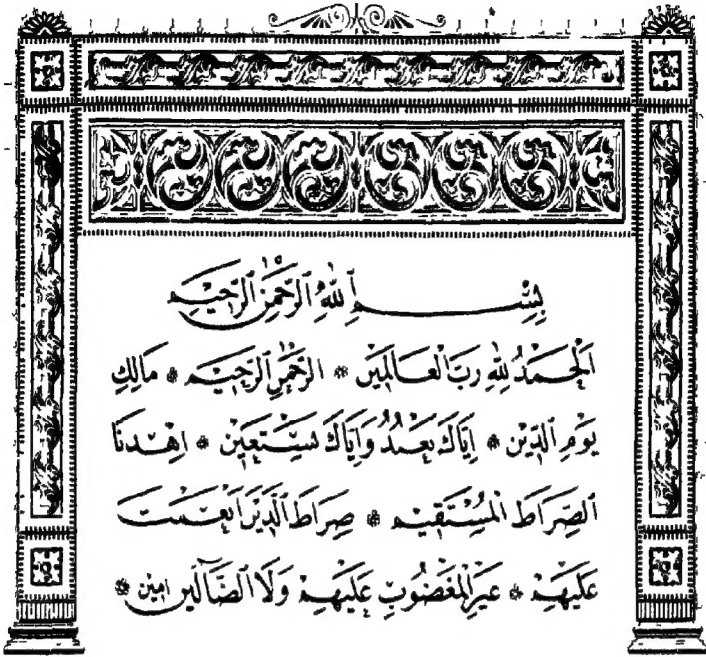 بِسْمِ ٱللّٰهِ ٱلرَّحْمٰنِ ٱلرَّحِيْمِ
اَلْحَمْدُ لِلّٰهِ رَبِّ الْعَالَمِيْنَ * الرَّحْمٰنِ الرَّحِيْمِ * مَالِكِ
يَوْمِ الدِّيْنِ * اِيَّاكَ نَعْبُدُ وَاِيَّاكَ نَسْتَعِيْنُ * اِهْدِنَا
الصِّرَاطَ الْمُسْتَقِيْمَ * صِرَاطَ الَّذِيْنَ اَنْعَمْتَ
عَلَيْهِمْ * غَيْرِ الْمَغْضُوْبِ عَلَيْهِمْ وَلَا الضَّآلِّيْنَ اٰمِيْن *